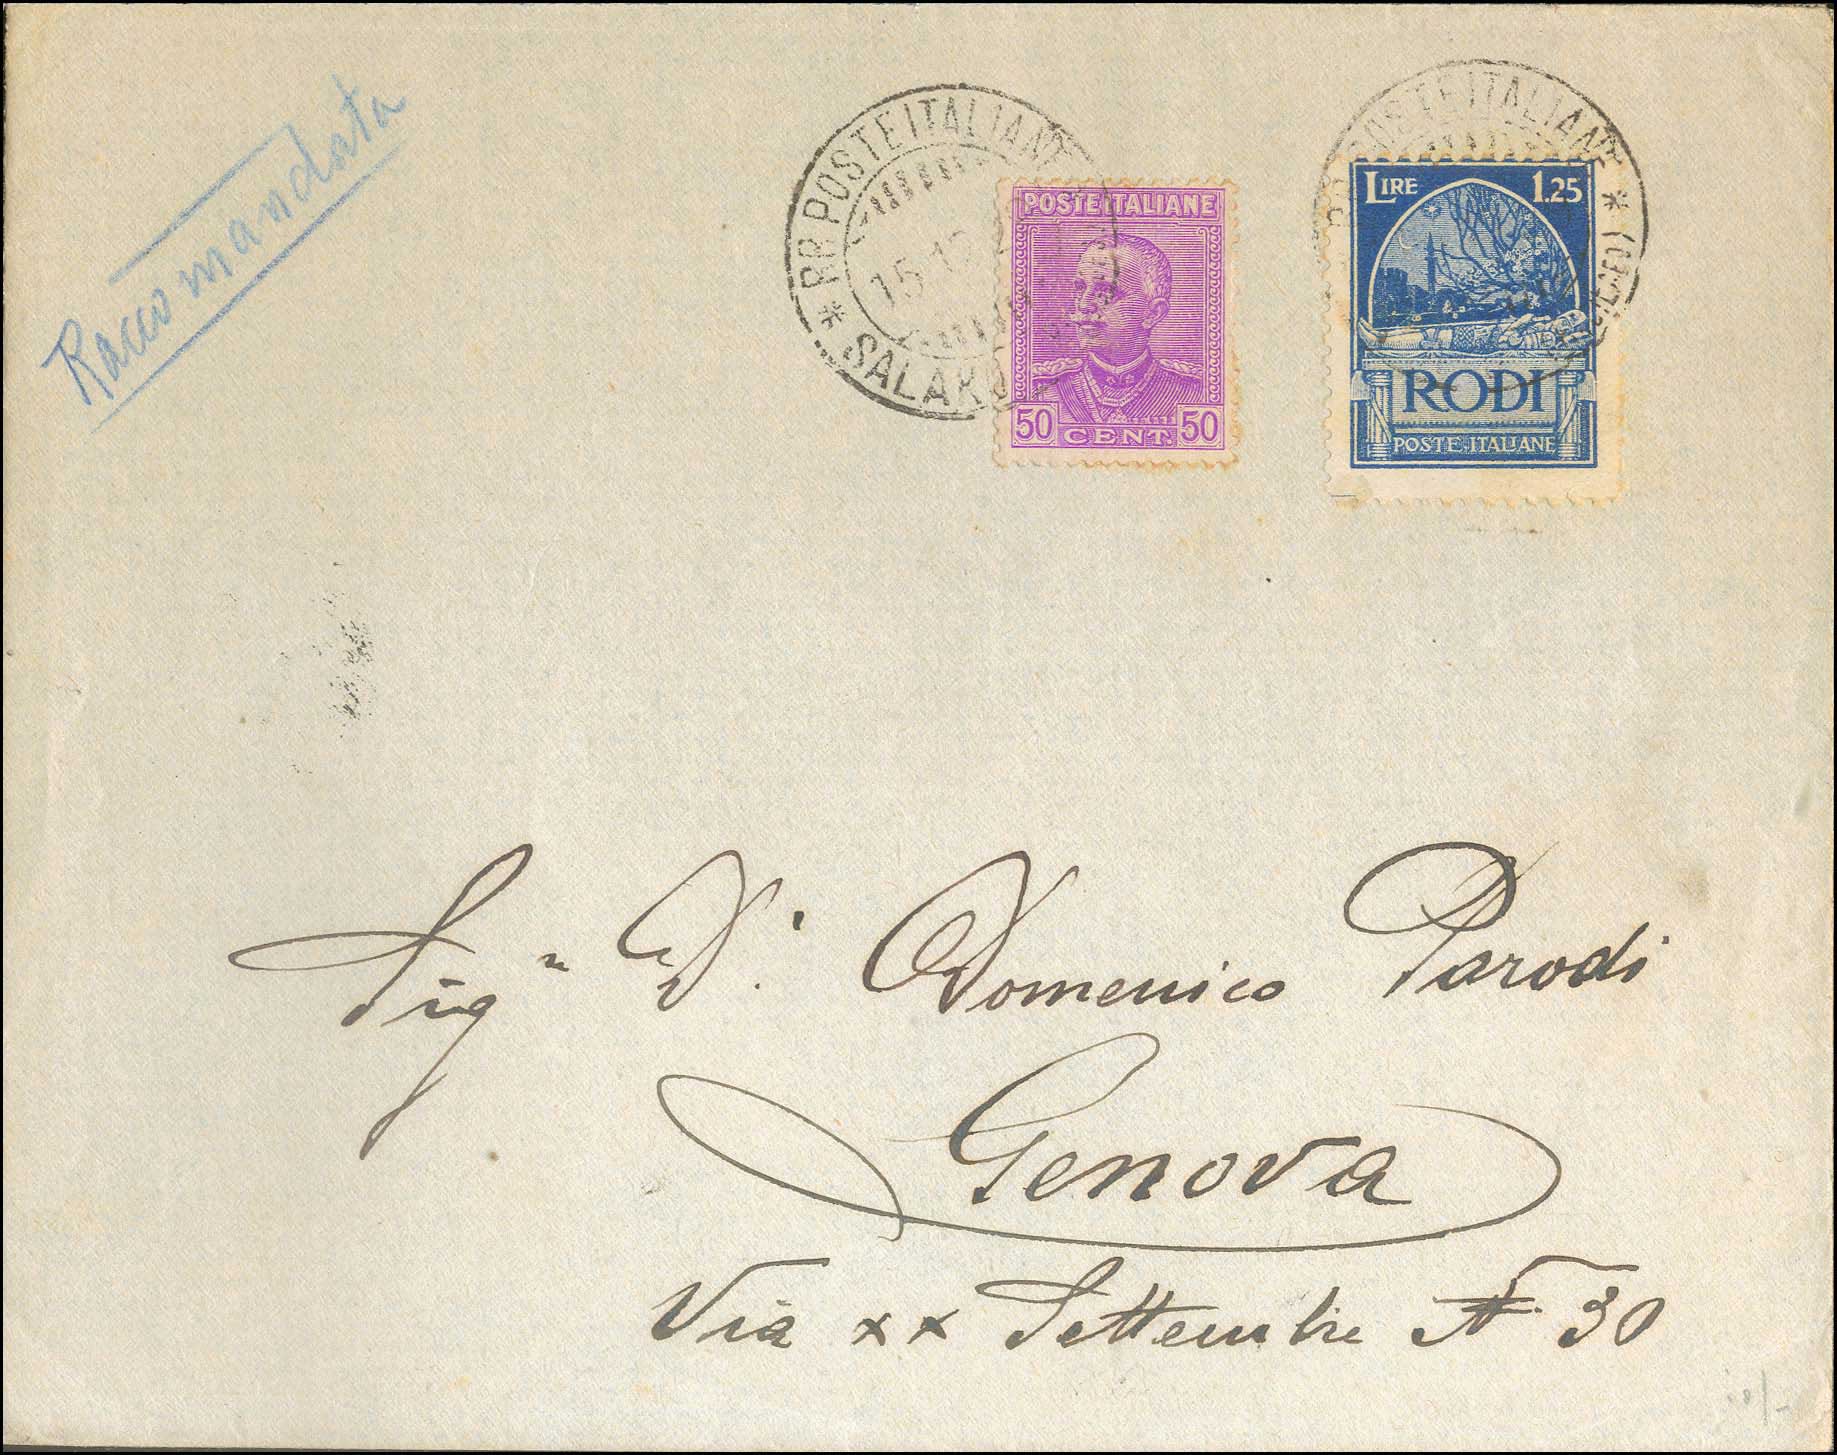 Raccomandata
RR POSTE ITALIANE
15 12
SALAKO
POSTE ITALIANE
50 CENT. 50
POSTE ITALIANE
LIRE 1.25
RODI
POSTE·ITALIANE
Sig.n D.r Domenico Parodi
Genova
Via XX Settembre N. 30